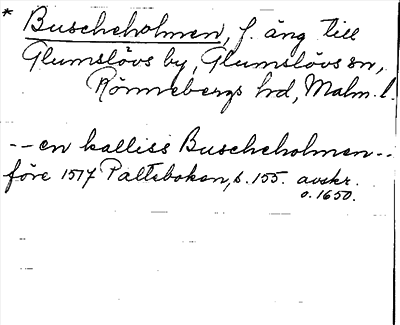 * Buscheholmen, f. äng till
Glumslövs by, Glumslövs sn,
Rönnebergs hd, Malm. l.
-- en kalliss Buscheholmen --
före 1517 Palteboken, s. 155. avskr.
o. 1650.